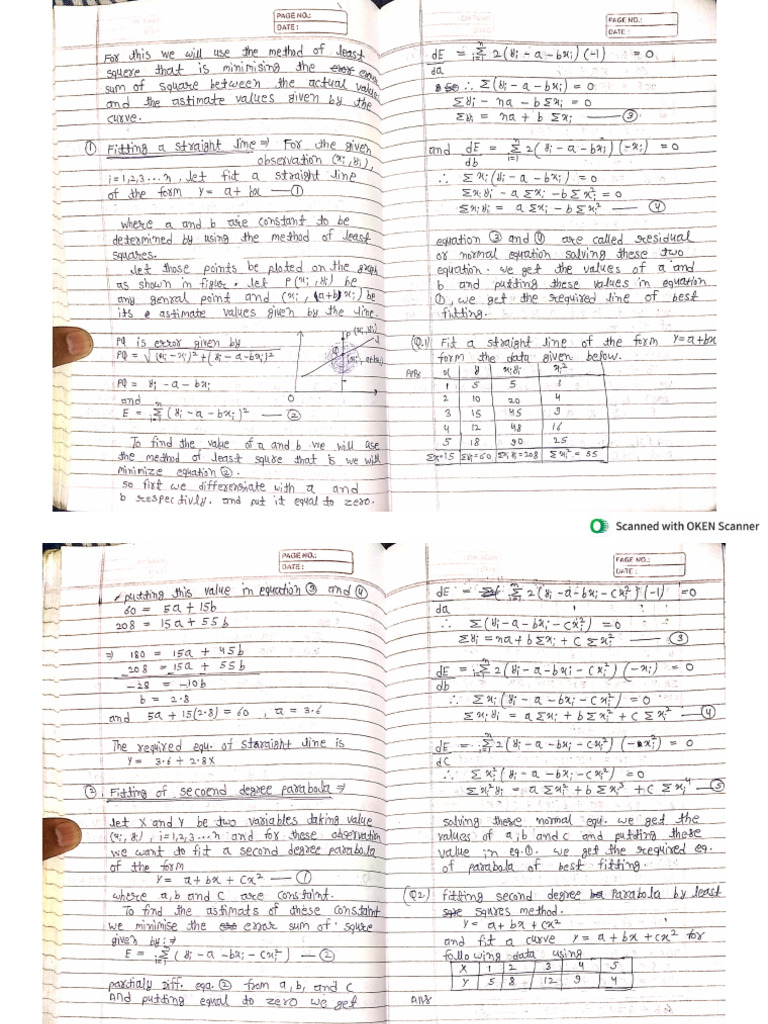 PAGE NO.:
DATE:
For this we will use the method of least
squere that is minimising the error
sum of square between the actual value
and the astimate values given by the
curve.
① Fitting a straight line ⇒ For the given
observation (xi, yi),
i = 1,2,3...n, let fit a straight line
of the form y = a + bx — ①
where a and b are constant to be
determined by using the method of least
squares.
let those points be ploted on the graph
as shown in figure. let P(xi, yi) be
any genral point and (xi, (a+b)xi) be
its astimate values given by the line.
PQ is error given by
PQ = √(xi - xi)² + (yi - a - bxi)²
PQ = yi - a - bxi
and
E = Σ(yi - a - bxi)² — ②
i=1
n
P(xi, yi)
(xi, a+bxi)
O
To find the value of a and b we will use
the method of least squre that is we will
minimize equation ②.
so firt we differenciate with a and
b respectivly. and put it equal to zero.
PAGE NO.:
DATE:
dE/da = Σ 2(yi - a - bxi)(-1) = 0
∴ Σ(yi - a - bxi) = 0
Σyi - na - bΣxi = 0
Σyi = na + bΣxi — ③
and dE/db = Σ 2(yi - a - bxi)(-xi) = 0
∴ Σxi(yi - a - bxi) = 0
Σxiyi - aΣxi - bΣxi² = 0
Σxiyi = aΣxi - bΣxi² — ④
equation ③ and ④ are called residual
or normal equation solving these two
equation. we get the values of a and
b and putting these values in equation
①, we get the required line of best
fitting.
(Q.1) Fit a straight line of the form y = a + bx
form the data given below.
Ans x y xiyi xi²
1 5 5 1
2 10 20 4
3 15 45 9
4 12 48 16
5 18 90 25
Σx=15 Σyi=60 Σxiyi=208 Σxi² = 55
Scanned with OKEN Scanner
PAGE NO.:
DATE:
putting this value in equation ③ and ④
60 = 5a + 15b
208 = 15a + 55b
⇒ 180 = 15a + 45b
208 = 15a + 55b
-28 = -10b
b = 2.8
and 5a + 15(2.8) = 60 , a = 3.6
The required equ. of staraight line is
y = 3.6 + 2.8x
② Fitting of secoend degree parabola ⇒
let X and Y be two variables taking value
(xi, yi), i = 1,2,3...n and for these observation
we want to fit a second degree parabola
of the form
y = a + bx + cx² — ①
where a, b and c are constaint.
To find the astimats of these constaint
we minimise the error sum of squre
given by: ⇒
E = Σ(yi - a - bxi - cxi²) — ②
partialy diff. equ. ② from a, b, and c
And putting equal to zero we get
PAGE NO.:
DATE:
dE/da = Σ 2(yi - a - bxi - cxi²)(-1) = 0
∴ Σ(yi - a - bxi - cxi²) = 0
Σyi = na + bΣxi + cΣxi² — ③
dE/db = Σ 2(yi - a - bxi - cxi²)(-xi) = 0
∴ Σxi(yi - a - bxi - cxi²) = 0
Σxiyi = aΣxi + bΣxi² + cΣxi³ — ④
dE/dc = Σ 2(yi - a - bxi - cxi²)(-xi²) = 0
∴ Σxi²(yi - a - bxi - cxi²) = 0
Σxi²yi = aΣxi² + bΣxi³ + cΣxi⁴ — ⑤
solving these normal equ. we get the
values of a, b and c and putting these
value in eq. ①. we get the required eq.
of parabala of best fitting.
(Q2.) Fitting second degree Parabola by least
squres method.
y = a + bx + cx²
and fit a curve y = a + bx + cx² for
following data using
X 1 2 3 4 5
Y 5 8 12 9 4
Ans